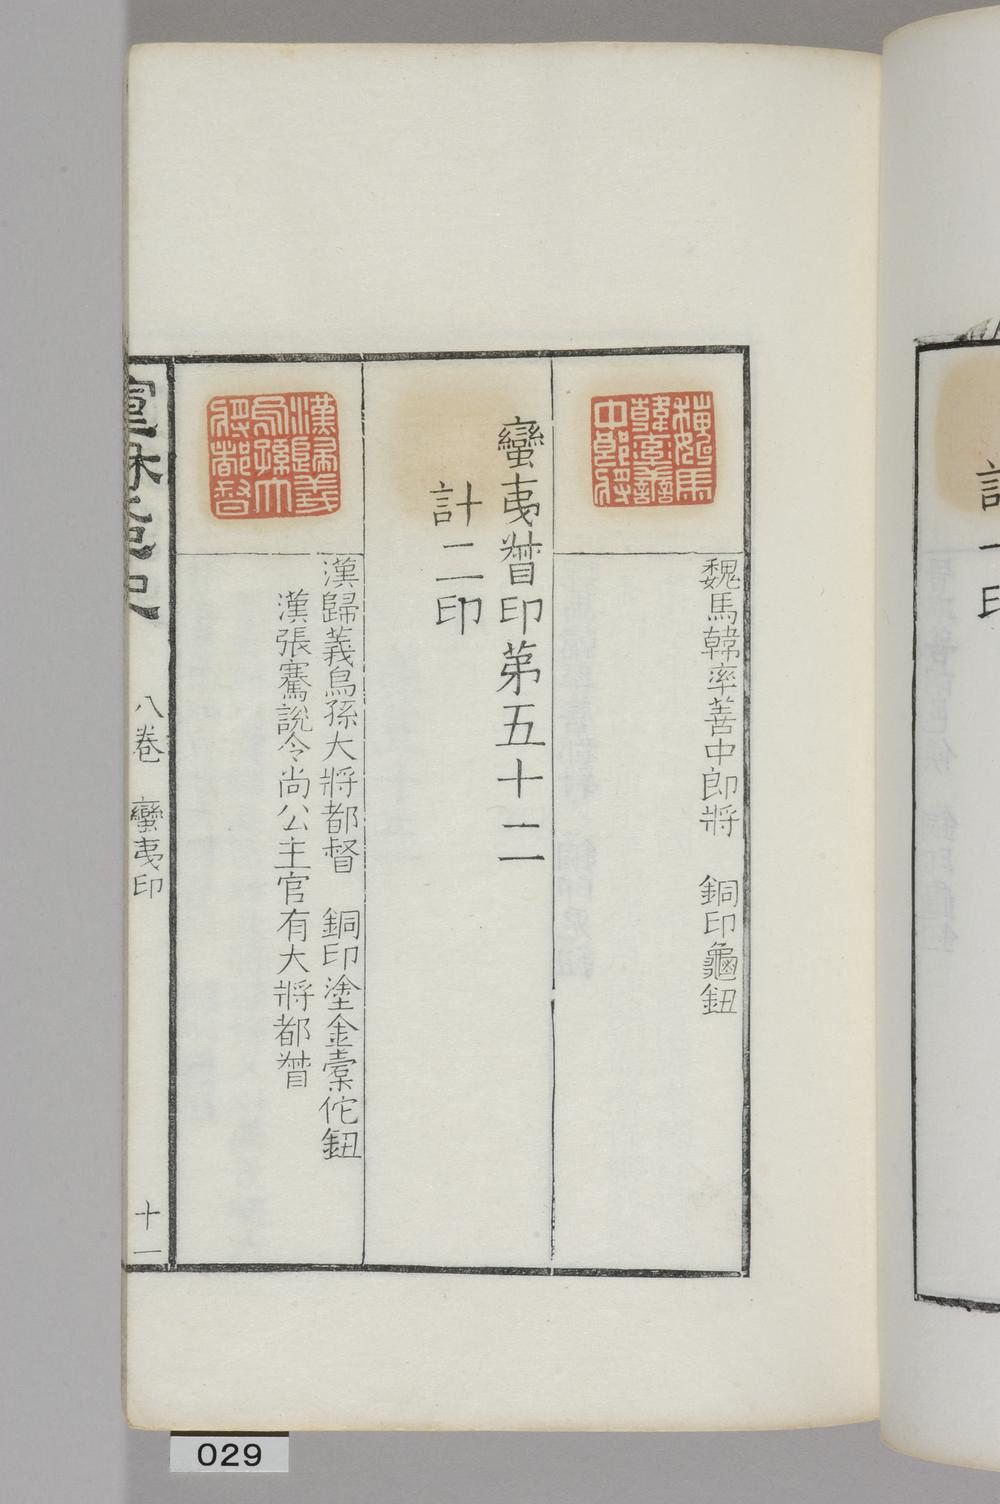 魏馬韓率善中郎將　銅印龜鈕
蠻夷督印第五十二
計二印
漢歸義烏孫大將都督　銅印塗金橐佗鈕
漢張騫說令尚公主官有大將都督
宣和集古印史　八卷　蠻夷印　十一
029